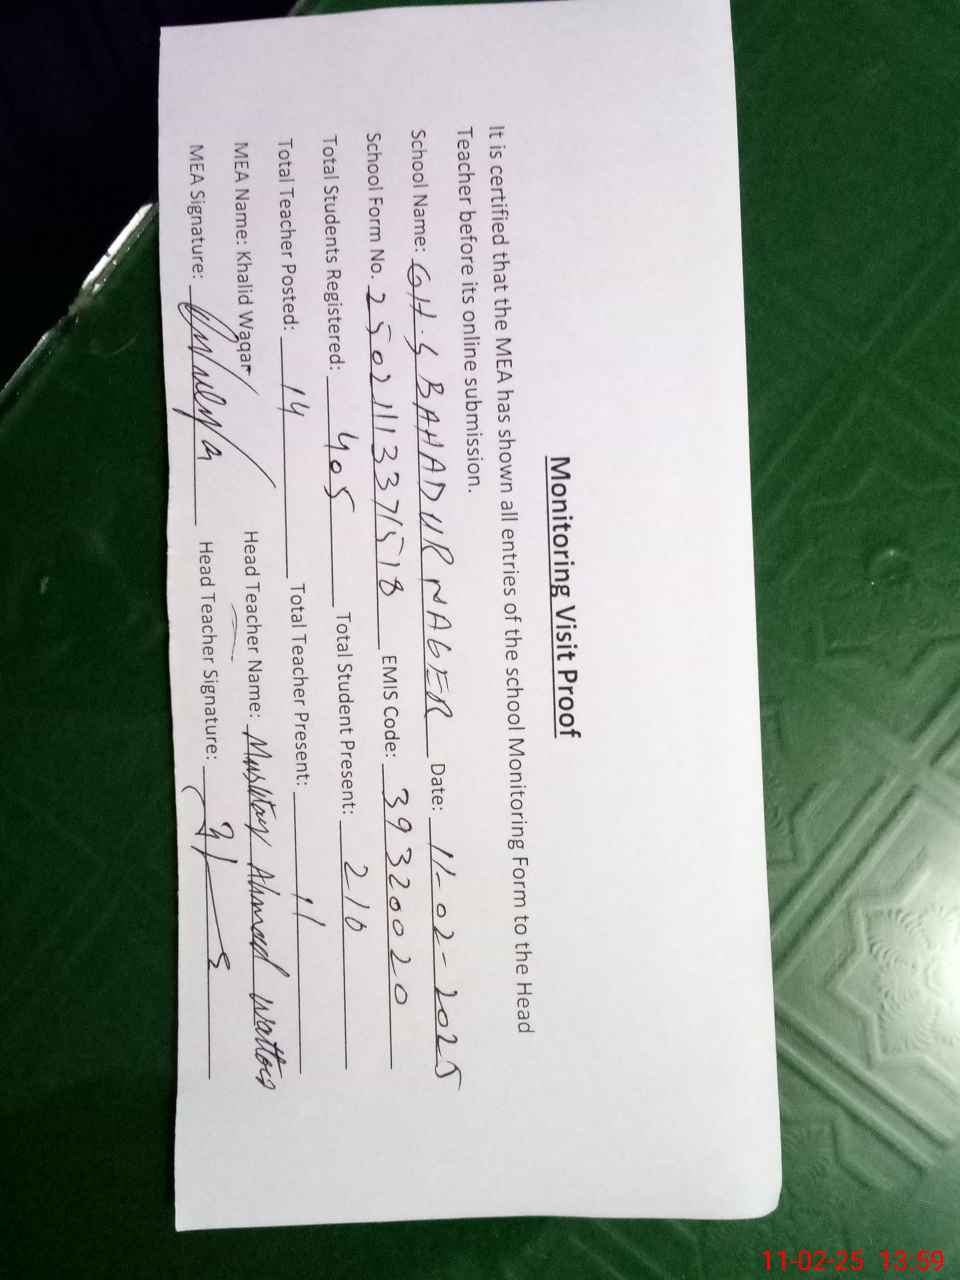 Monitoring Visit Proof
It is certified that the MEA has shown all entries of the school Monitoring Form to the Head
Teacher before its online submission.
School Name: GH.S BAHADUR NAGER Date: 11-02-2025
School Form No. EMIS Code: 39320020
Total Students Registered: 405 Total Student Present: 210
Total Teacher Posted: 14 Total Teacher Present: 11
MEA Name: Khalid Waqar Head Teacher Name: Mushtaq Ahmad Wattoo
MEA Signature: Head Teacher Signature:
11-02-25 13:59